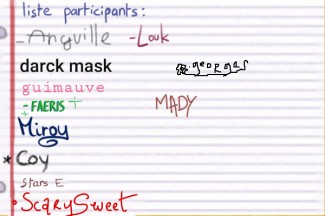 liste participants:
- Angville - Louk
darck mask
georges
guimauve
- FAERIS +
MADY
Miroy
* Coy
stars E
• ScarySweet